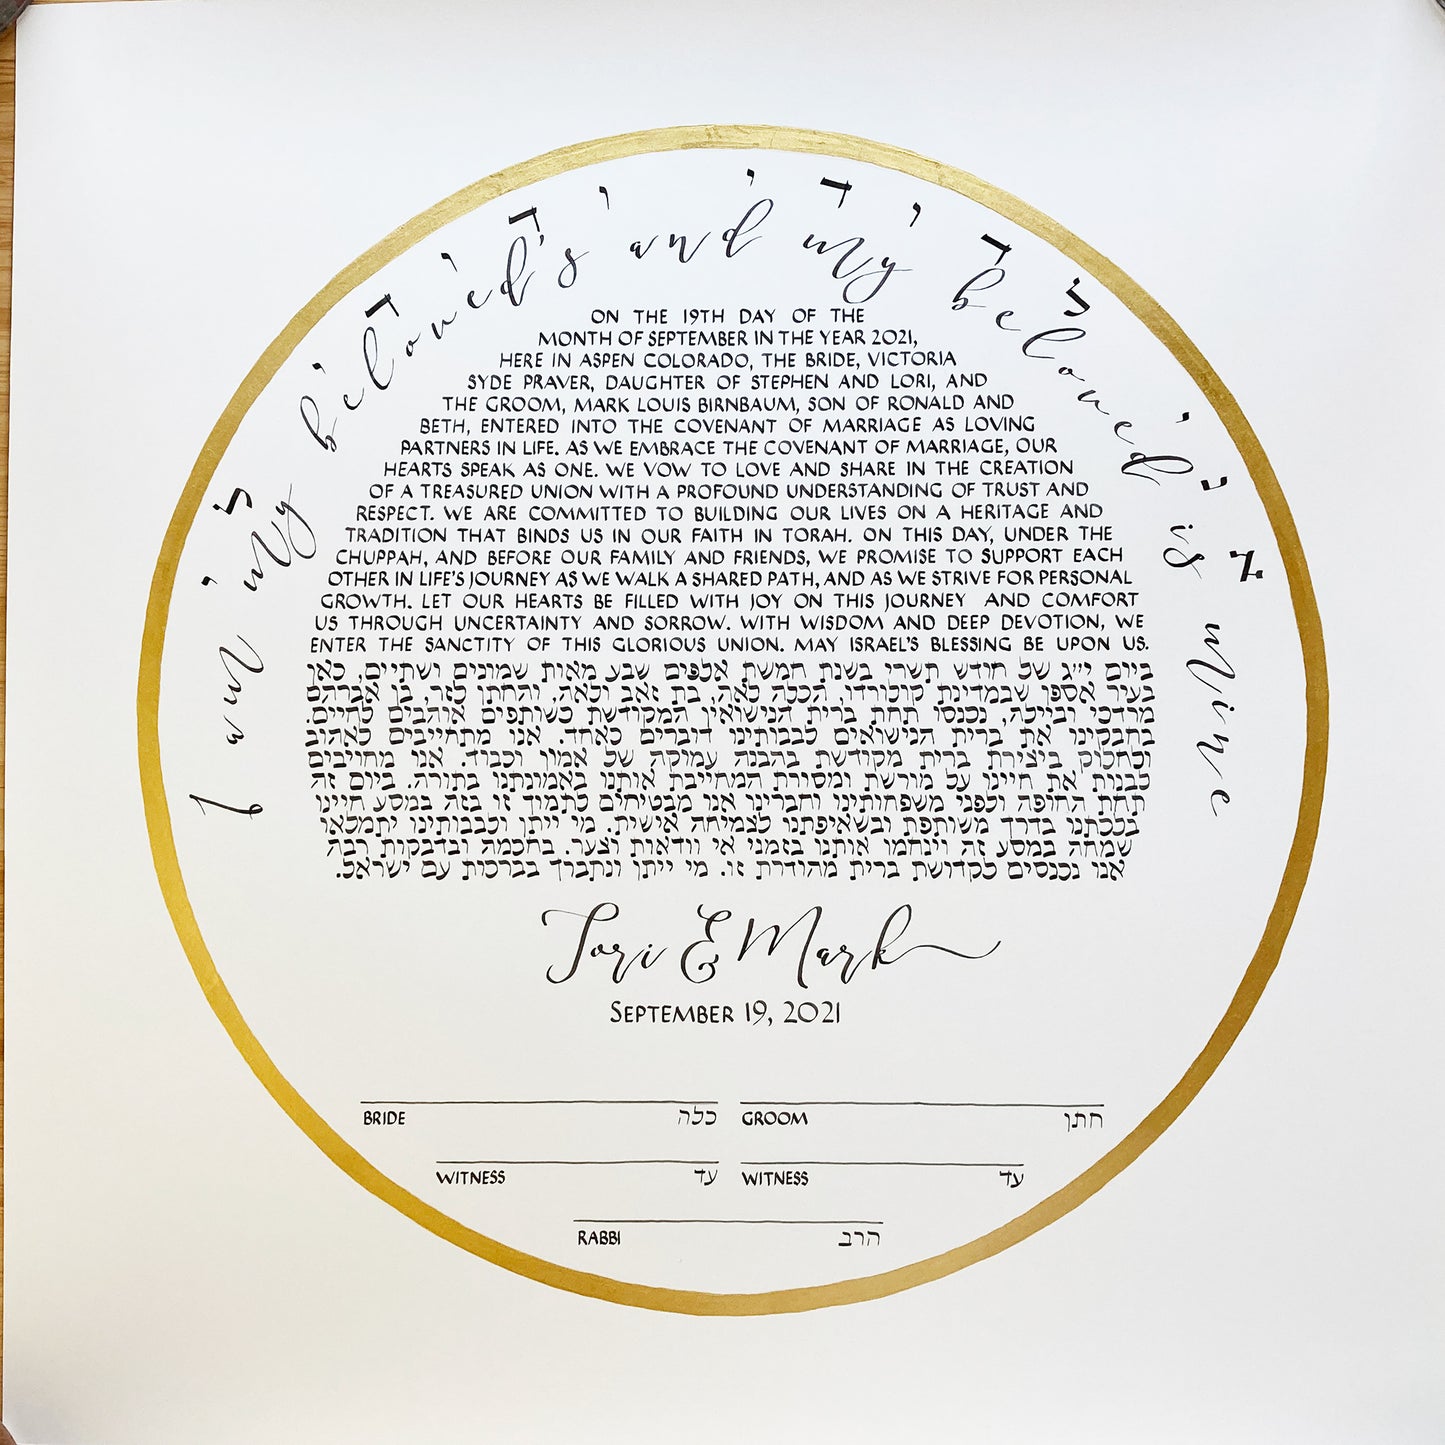 אני לדודי ודודי לי
I am my beloved's and my beloved is mine
ON THE 19TH DAY OF THE
MONTH OF SEPTEMBER IN THE YEAR 2021,
HERE IN ASPEN COLORADO, THE BRIDE, VICTORIA
SYDE PRAVER, DAUGHTER OF STEPHEN AND LORI, AND
THE GROOM, MARK LOUIS BIRNBAUM, SON OF RONALD AND
BETH, ENTERED INTO THE COVENANT OF MARRIAGE AS LOVING
PARTNERS IN LIFE. AS WE EMBRACE THE COVENANT OF MARRIAGE, OUR
HEARTS SPEAK AS ONE. WE VOW TO LOVE AND SHARE IN THE CREATION
OF A TREASURED UNION WITH A PROFOUND UNDERSTANDING OF TRUST AND
RESPECT. WE ARE COMMITTED TO BUILDING OUR LIVES ON A HERITAGE AND
TRADITION THAT BINDS US IN OUR FAITH IN TORAH. ON THIS DAY, UNDER THE
CHUPPAH, AND BEFORE OUR FAMILY AND FRIENDS, WE PROMISE TO SUPPORT EACH
OTHER IN LIFE'S JOURNEY AS WE WALK A SHARED PATH, AND AS WE STRIVE FOR PERSONAL
GROWTH. LET OUR HEARTS BE FILLED WITH JOY ON THIS JOURNEY AND COMFORT
US THROUGH UNCERTAINTY AND SORROW. WITH WISDOM AND DEEP DEVOTION, WE
ENTER THE SANCTITY OF THIS GLORIOUS UNION. MAY ISRAEL'S BLESSING BE UPON US.
ביום י״ג של חודש תשרי בשנת חמשת אלפים שבע מאות שמונים ושתיים, כאן
בעיר אספן שבמדינת קולורדו, הכלה לאה, בת זאב ולאה, והחתן לזר, בן אברהם
מרדכי וביילה, נכנסו תחת ברית הנישואין המקודשת כשותפים אוהבים לחיים.
בחבקינו את ברית הנישואים לבבותינו דוברים כאחד. אנו מתחייבים לאהוב
ולחלוק ביצירת ברית מקודשת בהבנה עמוקה של אמון וכבוד. אנו מחויבים
לבנות את חיינו על מורשת ומסורת המחייבת אותנו באמונתנו בתורה. ביום זה
תחת החופה ולפני משפחותינו וחברינו אנו מבטיחים לתמוך זו בזה במסע חיינו
בלכתנו בדרך משותפת ובשאיפתנו לצמיחה אישית. מי ייתן ולבבותינו יתמלאו
שמחה במסע זה וינחמו אותנו בזמני אי וודאות וצער. בחכמה ובדבקות רבה
אנו נכנסים לקדושת ברית מהודרת זו. מי ייתן ונתבורך בברכות עם ישראל.
Tori & Mark
SEPTEMBER 19, 2021
BRIDE כלה GROOM חתן
WITNESS עד WITNESS עד
RABBI הרב